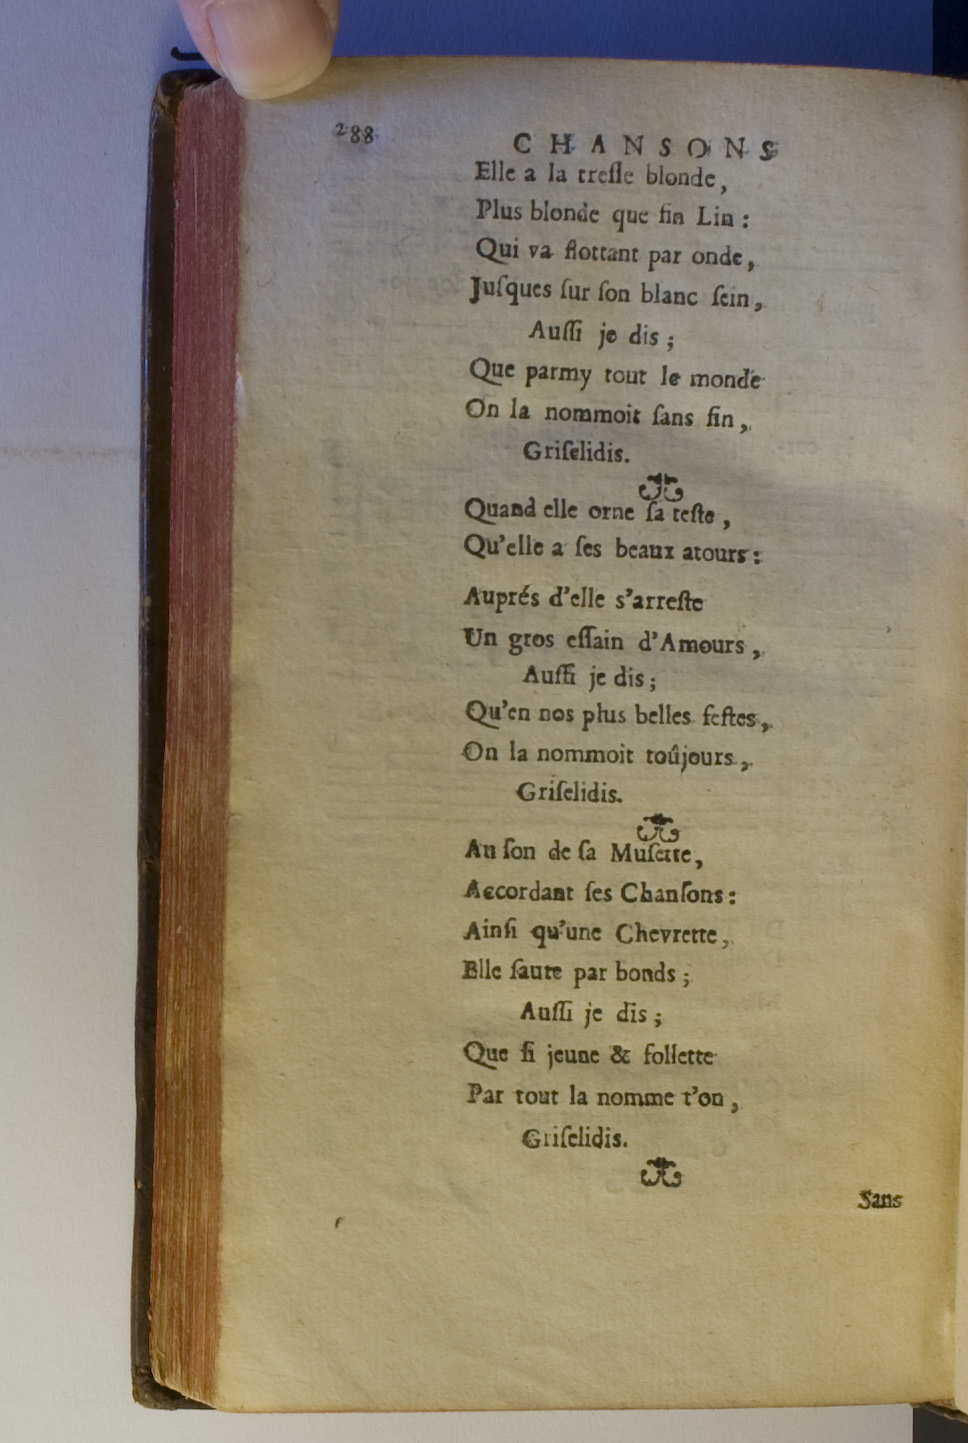 288
CHANSONS
Elle a la treſſe blonde,
Plus blonde que fin Lin:
Qui va flottant par onde,
Juſques ſur ſon blanc ſein,
Auſſi je dis;
Que parmy tout le monde
On la nommoit ſans fin,
Griſelidis.
Quand elle orne ſa teſte,
Qu'elle a ſes beaux atours:
Auprés d'elle s'arreſte
Un gros eſſain d'Amours,
Auſſi je dis;
Qu'en nos plus belles feſtes,
On la nommoit toûjours,
Griſelidis.
Au ſon de ſa Muſette,
Accordant ſes Chanſons:
Ainſi qu'une Chevrette,
Elle ſaute par bonds;
Auſſi je dis;
Que ſi jeune & follette
Par tout la nomme t'on,
Griſelidis.
Sans